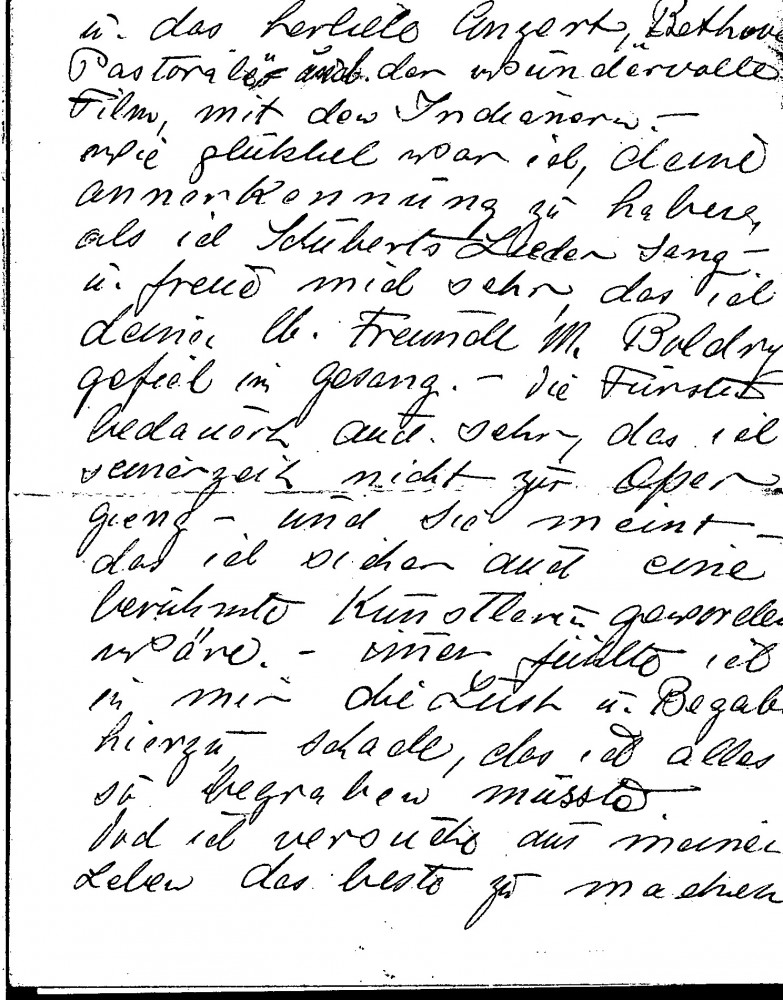 u. das herliche Conzert, "Bethove
Pastorale" auch der wundervolle
Film, mit den Indianern. –
wie glüklich war ich, deine
annerkennung zu haben,
als ich Schuberts Lieder sang –
u. freue mich sehr, das ich
deiner lb. Freundin M. Boldry
gefiel im gesang. – die Fürstin
bedauert auch sehr, das ich
seinerzeit nicht zur Oper
gieng – und Sie meint –
das ich sicher auch eine
berühmte Künstlerin geworden
wäre. – imer fühlte ich
in mir die Lust u. Begab
hierzu, schade, das ich alles
so begraben musste
Und ich versuche aus meinem
Leben das beste zu machen